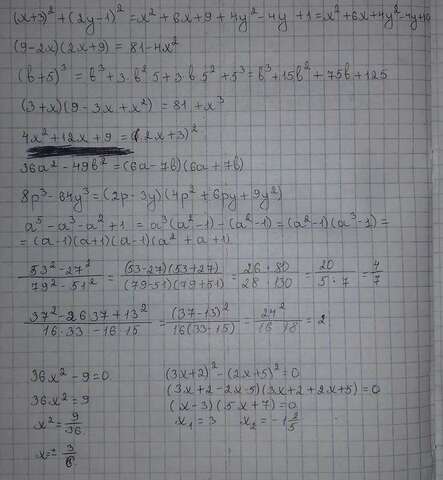 (x+3)² + (2y-1)² = x² + 6x + 9 + 4y² - 4y + 1 = x² + 6x + 4y² - 4y + 10
(9-2x)(2x+9) = 81 - 4x²
(b+5)³ = b³ + 3·b²5 + 3b5² + 5³ = b³ + 15b² + 75b + 125
(3+x)(9-3x+x²) = 81 + x³
4x² + 12x + 9 = (2x+3)²
36a² - 49b² = (6a-7b)(6a+7b)
8p³ - 64y³ = (2p-3y)(4p² + 6py + 9y²)
a⁵ - a³ - a² + 1 = a³(a²-1) - (a²-1) = (a²-1)(a³-1) =
= (a-1)(a+1)(a-1)(a² + a + 1)
(53² - 27²)/(79² - 51²) = ((53-27)(53+27))/((79-51)(79+51)) = (26·80)/(28·130) = 20/(5·7) = 4/7
(37² - 2637 + 13²)/(16·33 - 16·15) = (37-13)²/(16(33-15)) = 24²/(16·18) = 2
36x² - 9 = 0
36x² = 9
x² = 9/36
x = ± 3/6
(3x+2)² - (2x+5)² = 0
(3x+2-2x-5)(3x+2+2x+5) = 0
(x-3)(5x+7) = 0
x₁ = 3 x₂ = -1 2/5